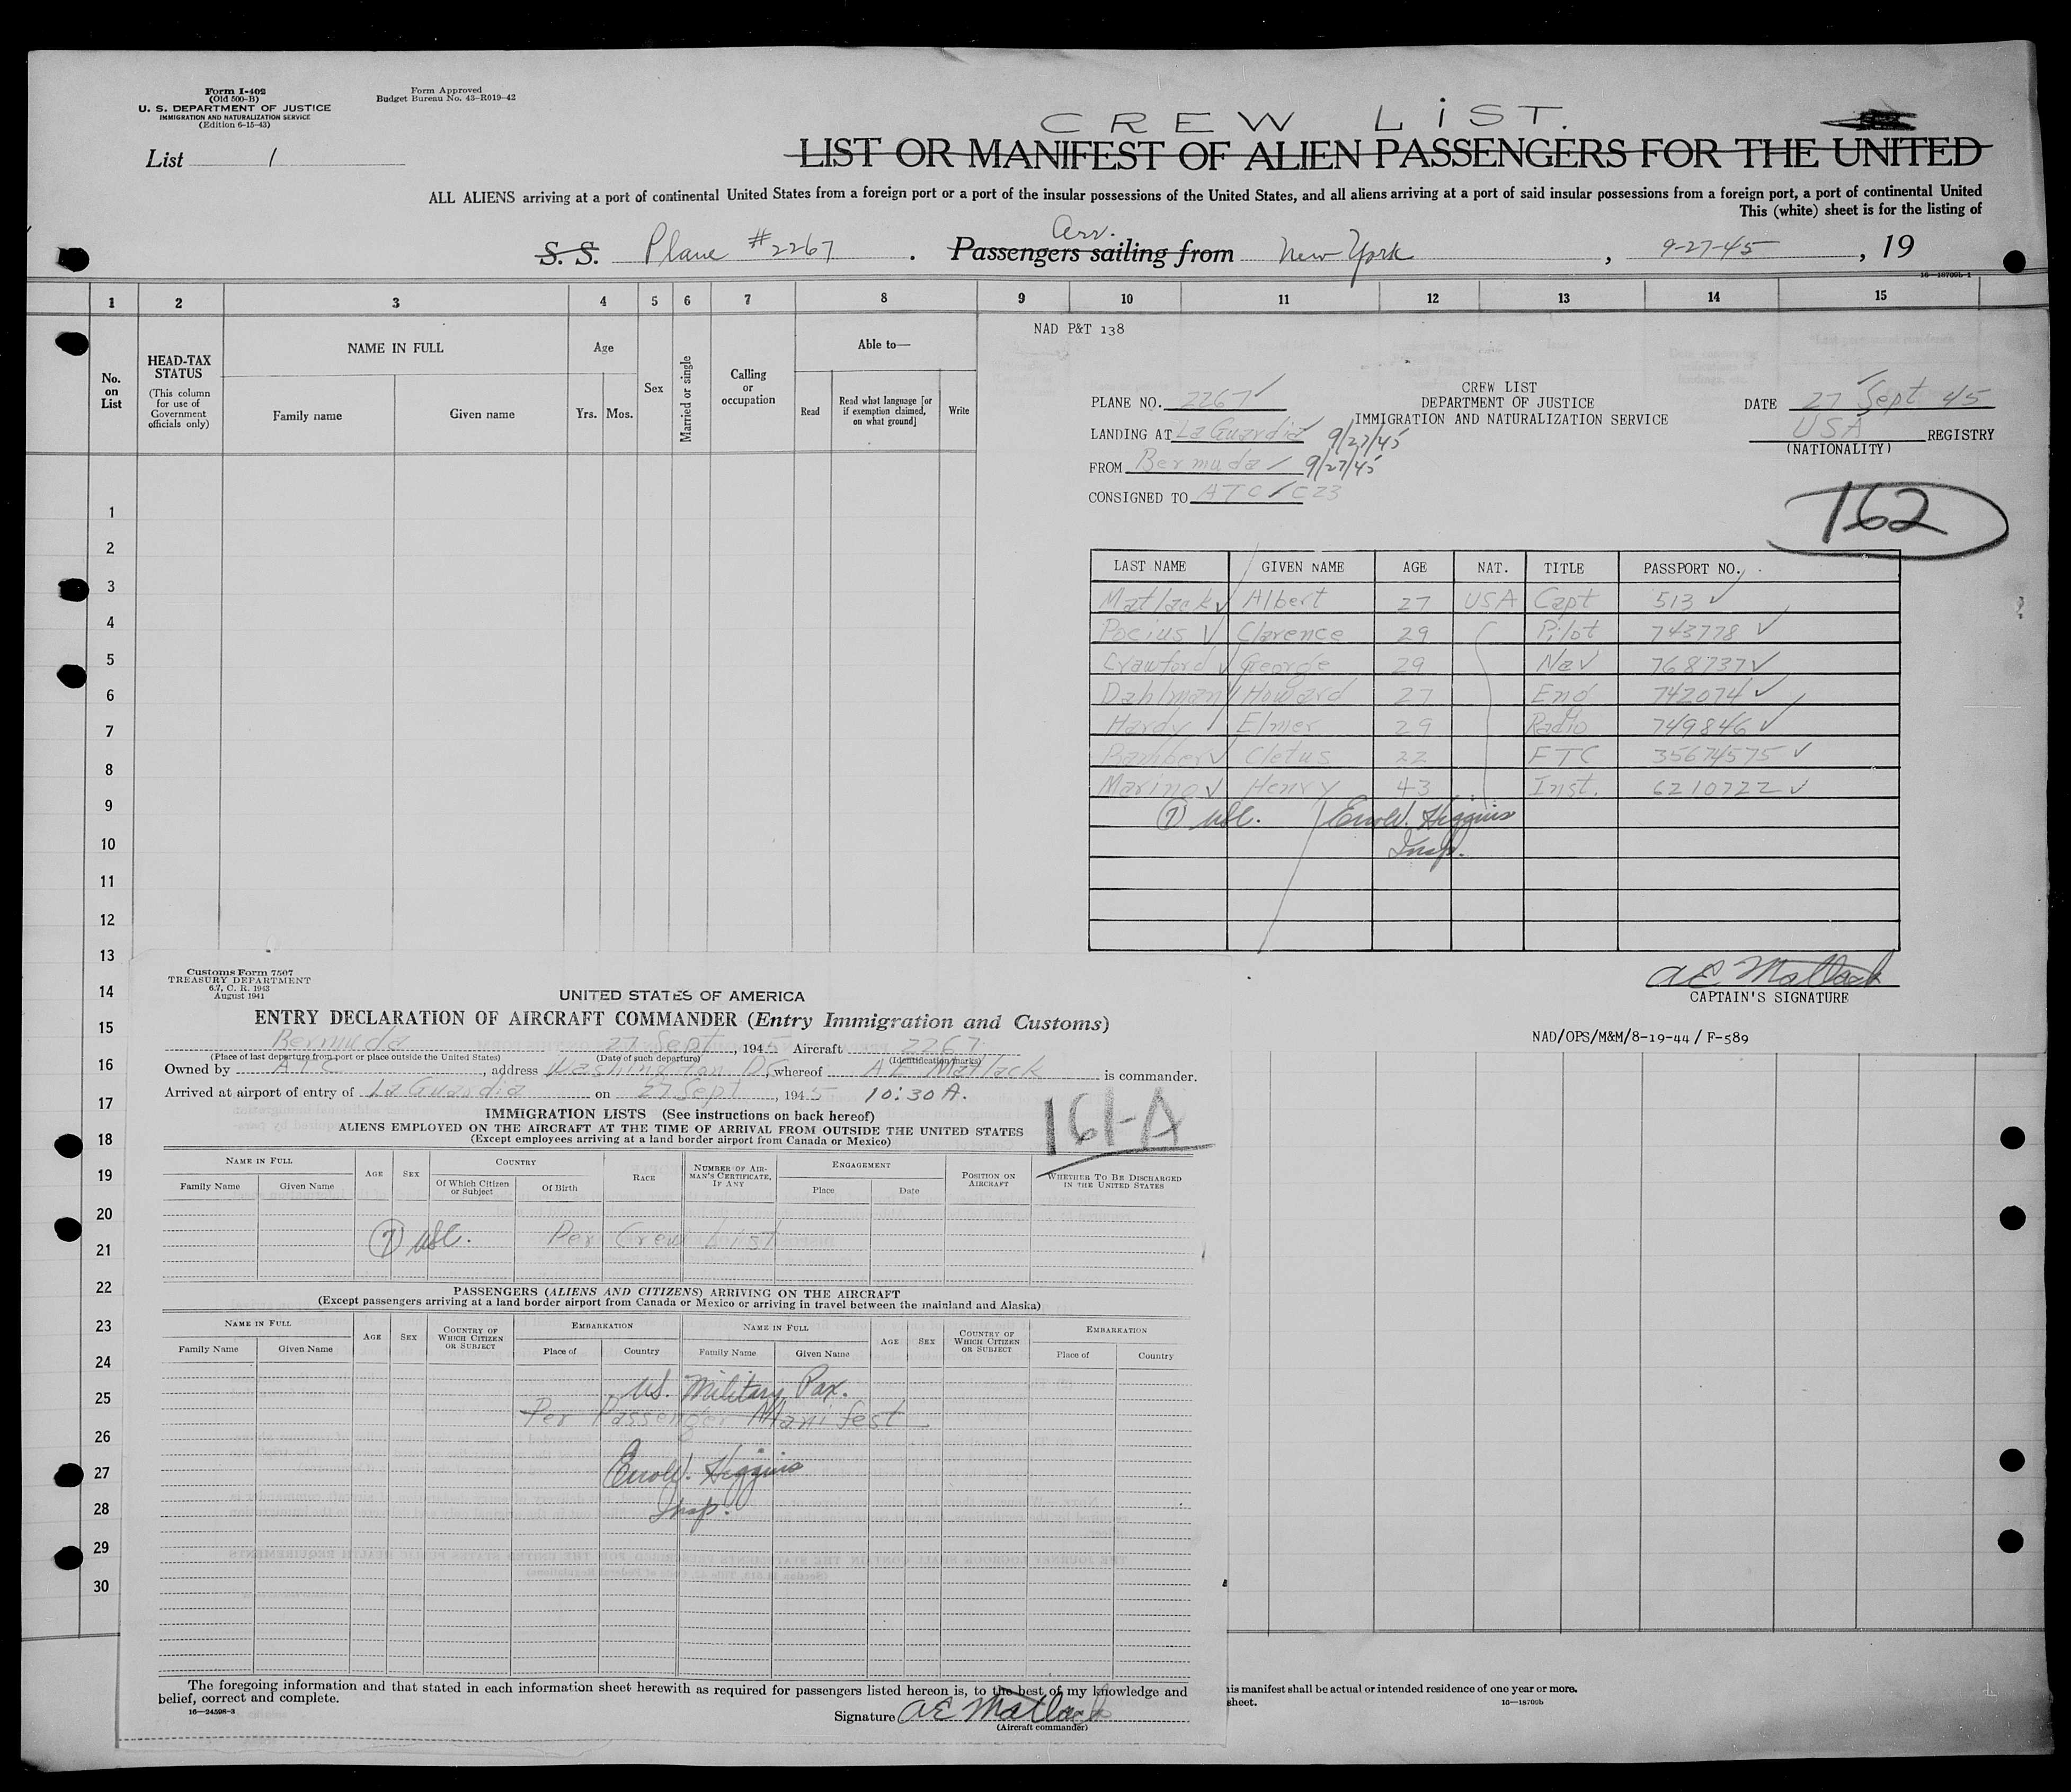 Form I-402
(Old 500-B)
U. S. DEPARTMENT OF JUSTICE
IMMIGRATION AND NATURALIZATION SERVICE
(Edition 6-15-43)
Form Approved
Budget Bureau No. 43-R019-42
List 1
CREW LIST.
LIST OR MANIFEST OF ALIEN PASSENGERS FOR THE UNITED
ALL ALIENS arriving at a port of continental United States from a foreign port or a port of the insular possessions of the United States, and all aliens arriving at a port of said insular possessions from a foreign port, a port of continental United
This (white) sheet is for the listing of
Arr.
S. S. Plane #2267 . Passengers sailing from New York , 9-27-45 , 19
16—18709b-1
1 2 3 4 5 6 7 8 9 10 11 12 13 14 15
No. on List
HEAD-TAX STATUS
(This column for use of Government officials only)
NAME IN FULL
Family name Given name
Age
Yrs. Mos.
Sex
Married or single
Calling or occupation
Able to—
Read Read what language [or if exemption claimed, on what ground] Write
1
2
3
4
5
6
7
8
9
10
11
12
13
14
15
16
17
18
19
20
21
22
23
24
25
26
27
28
29
30
NAD P&T 138
CREW LIST
DEPARTMENT OF JUSTICE
IMMIGRATION AND NATURALIZATION SERVICE
PLANE NO. 2267
LANDING AT La Guardia 9/27/45
FROM Bermuda 9/27/45
CONSIGNED TO ATC C23
DATE 27 Sept 45
USA REGISTRY
(NATIONALITY)
162
LAST NAME GIVEN NAME AGE NAT. TITLE PASSPORT NO.
Matlack Albert 27 USA Capt 513
Pocius Clarence 29 Pilot 743778
Crawford George 29 Nav 768737
Dahlman Howard 27 Eng 742074
Hardy Elmer 29 Radio 749846
Bamber Cletus 22 FTC 35674575
Marino Henry 43 Inst. 6210722
7 USC. Higgins
Insp.
AE Matlack
CAPTAIN'S SIGNATURE
NAD/OPS/M&M/8-19-44 / F-589
Customs Form 7507
TREASURY DEPARTMENT
6.7, C. R. 1943
August 1941
UNITED STATES OF AMERICA
ENTRY DECLARATION OF AIRCRAFT COMMANDER (Entry Immigration and Customs)
Bermuda 27 Sept , 1945 Aircraft 2267
(Place of last departure from port or place outside the United States) (Date of such departure) (Identification marks)
Owned by ATC , address Washington DC , whereof AE Matlack is commander.
Arrived at airport of entry of La Guardia on 27 Sept , 1945 10:30 A.
161-A
IMMIGRATION LISTS (See instructions on back hereof)
ALIENS EMPLOYED ON THE AIRCRAFT AT THE TIME OF ARRIVAL FROM OUTSIDE THE UNITED STATES
(Except employees arriving at a land border airport from Canada or Mexico)
NAME IN FULL
Family Name Given Name
AGE SEX
COUNTRY
Of Which Citizen or Subject Of Birth
RACE
NUMBER OF AIRMAN'S CERTIFICATE, IF ANY
ENGAGEMENT
Place Date
POSITION ON AIRCRAFT
WHETHER TO BE DISCHARGED IN THE UNITED STATES
7 USC. Per Crew List
PASSENGERS (ALIENS AND CITIZENS) ARRIVING ON THE AIRCRAFT
(Except passengers arriving at a land border airport from Canada or Mexico or arriving in travel between the mainland and Alaska)
NAME IN FULL AGE SEX COUNTRY OF WHICH CITIZEN OR SUBJECT EMBARKATION NAME IN FULL AGE SEX COUNTRY OF WHICH CITIZEN OR SUBJECT EMBARKATION
Family Name Given Name Place of Country Family Name Given Name Place of Country
US. Military Pax.
Per Passenger Manifest
Higgins
Insp.
The foregoing information and that stated in each information sheet herewith as required for passengers listed hereon is, to the best of my knowledge and
belief, correct and complete.
16—24598-3
Signature AE Matlack
(Aircraft commander)
is manifest shall be actual or intended residence of one year or more.
sheet.
16—18709b